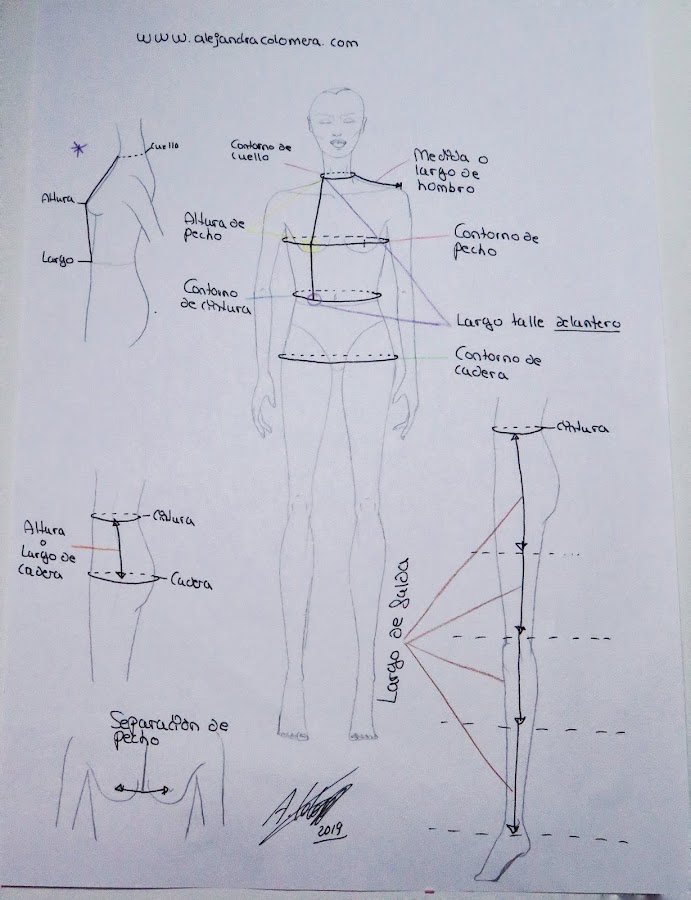 www.alejandracolomera.com
Cuello
Altura
Largo
Contorno de
cuello
Medida o
largo de
hombro
Altura de
pecho
Contorno de
pecho
Contorno
de cintura
Largo talle delantero
Contorno de
cadera
cintura
Altura
o
Largo de
cadera
cintura
Cadera
Largo de falda
Separación de
pecho
2019